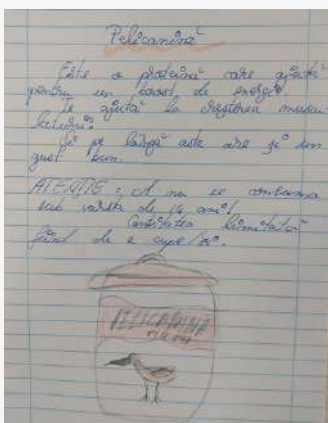 Pelicanină
Este o proteină care ajută
pentru un boost de energie.
Te ajută la creșterea muscu
laturii.
Și pe lângă asta are și un
gust bun.
ATENȚIE: A nu se consuma
sub vârsta de 14 ani!
Cantitatea limitată
fiind de 2 cupe/zi.
PELICANINĂ